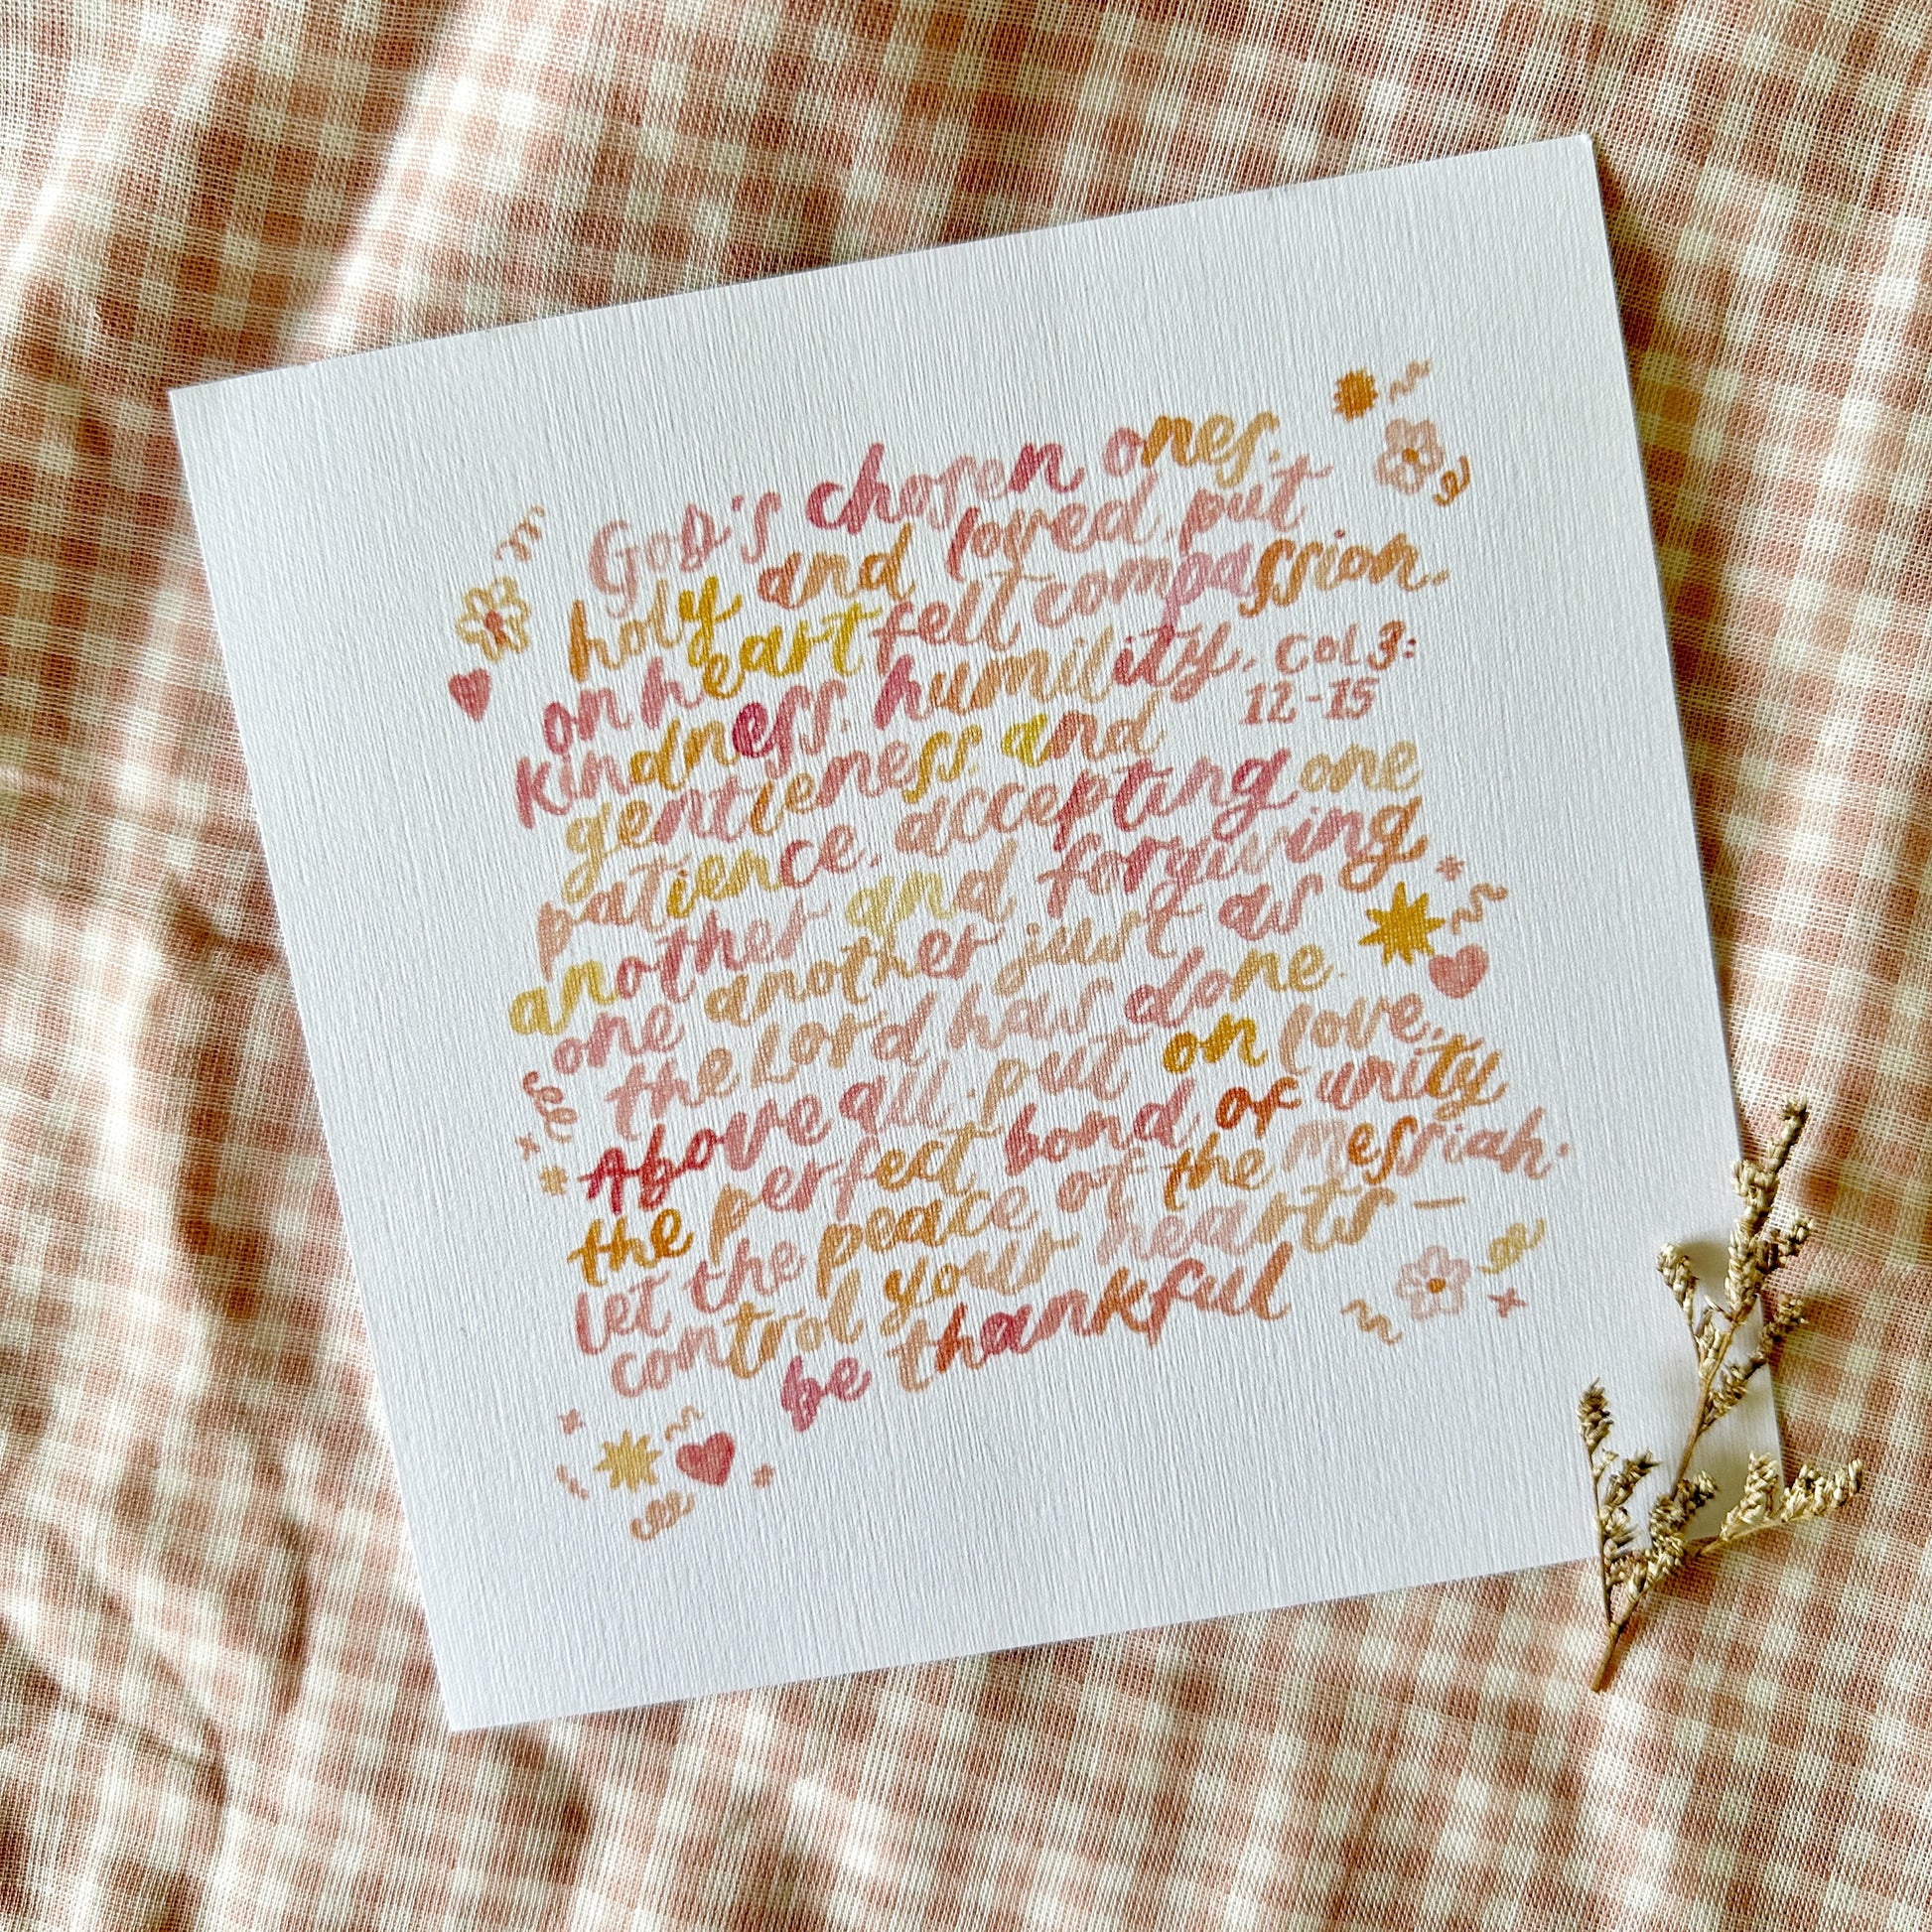 GoD's chosen ones,
holy and loved, put
on heartfelt compassion,
kindness, humility, Col 3:
12-15
gentleness, and
patience, accepting one
another and forgiving
one another just as
the Lord has done.
Above all, put on love,
the perfect bond of unity
let the peace of the Messiah,
control your hearts —
be thankful